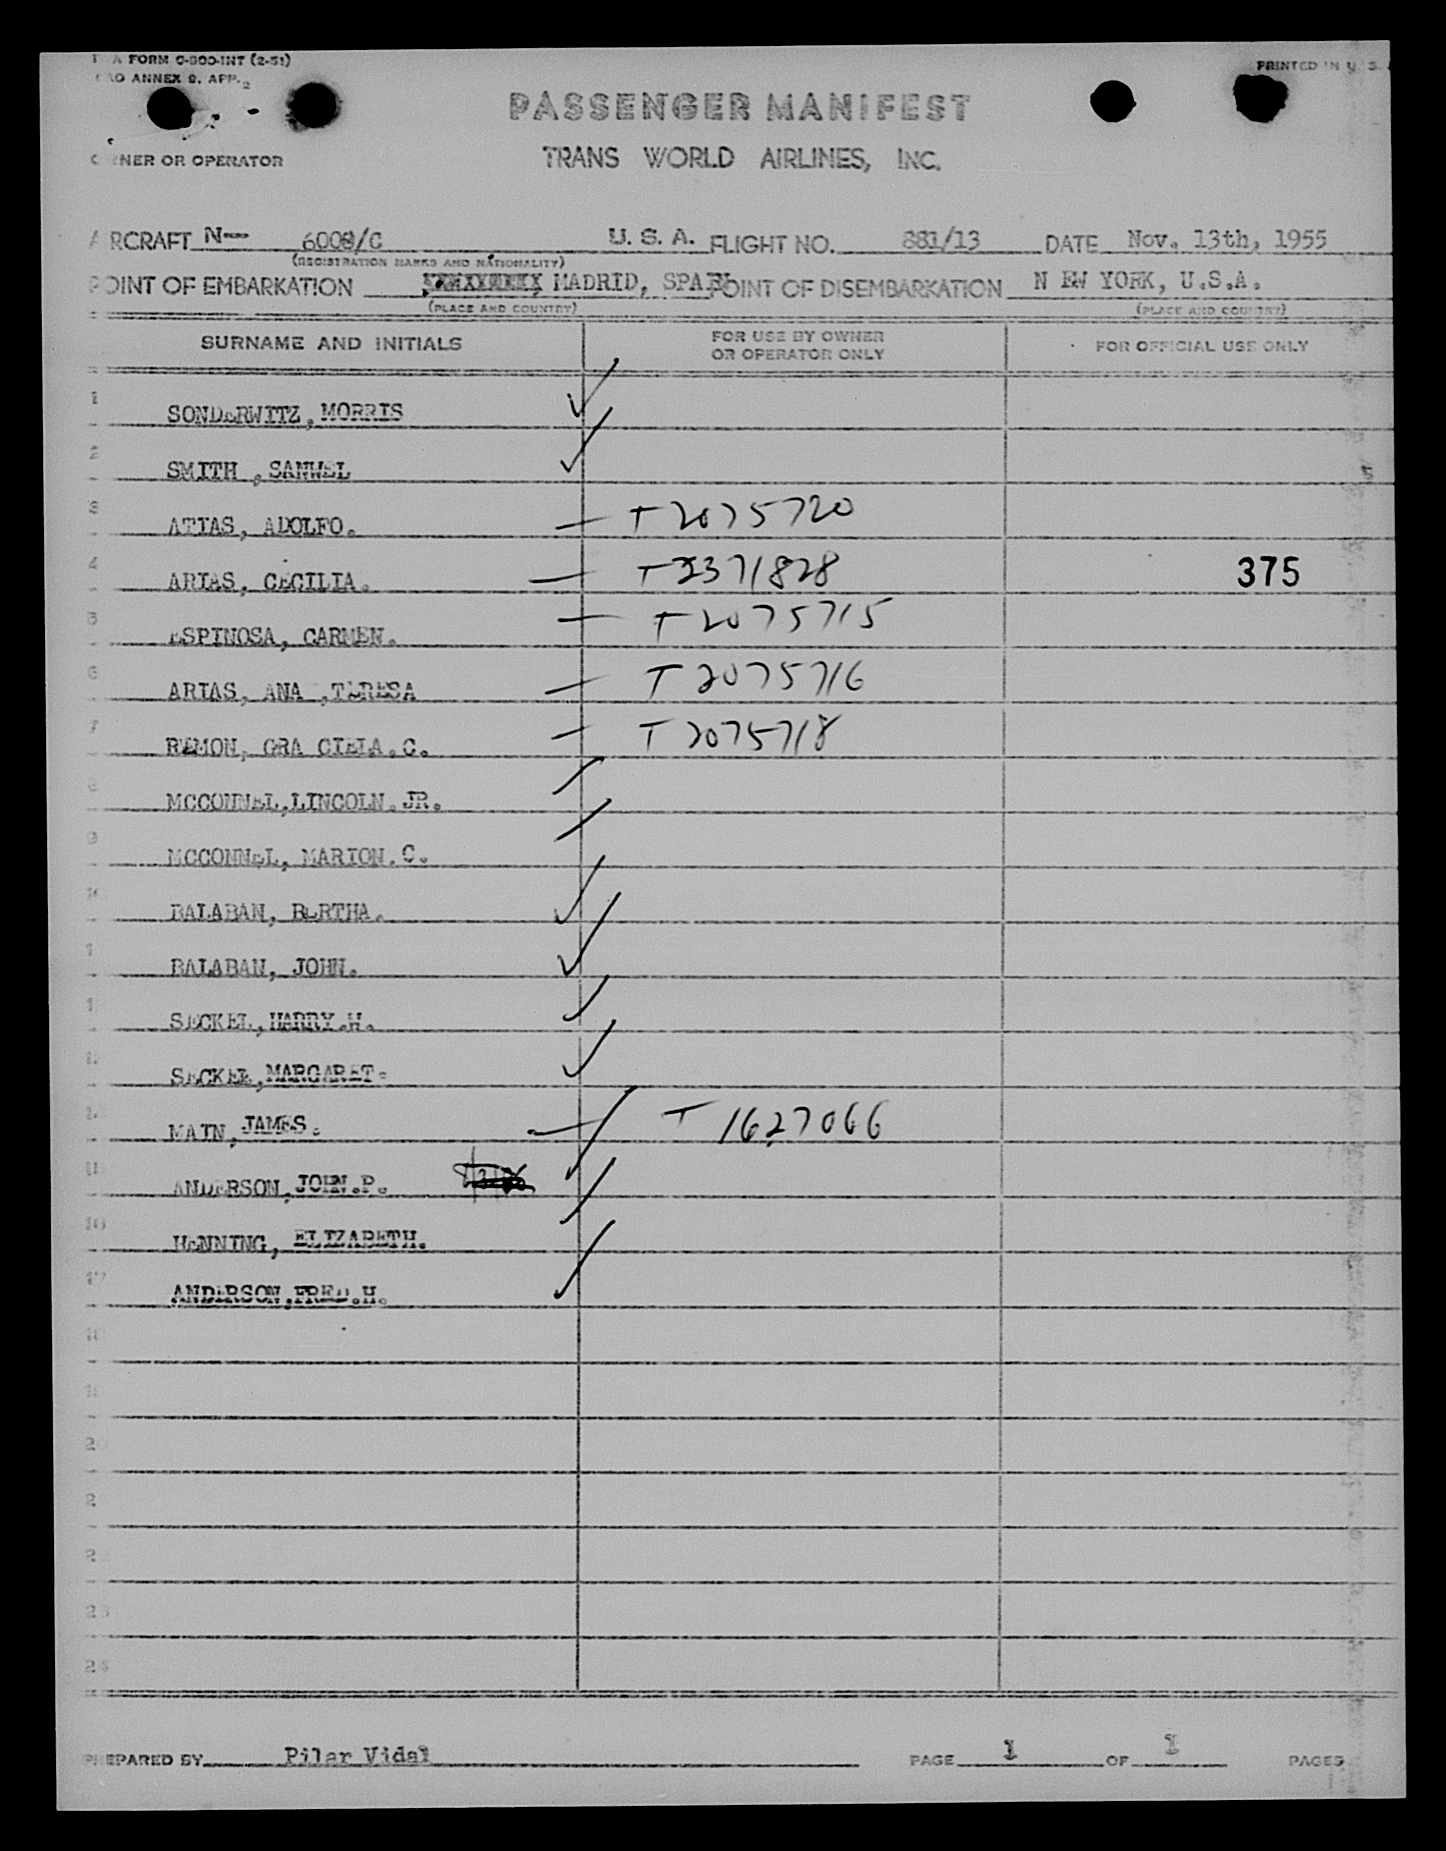 FORM C-800-INT (2-51)
ANNEX 9, APP. 2
PRINTED IN U. S.
PASSENGER MANIFEST
OWNER OR OPERATOR
TRANS WORLD AIRLINES, INC.
AIRCRAFT N-- 6008/C U. S. A. FLIGHT NO. 881/13 DATE Nov. 13th, 1955
(REGISTRATION MARKS AND NATIONALITY)
POINT OF EMBARKATION MADRID, SPAIN POINT OF DISEMBARKATION N EW YORK, U.S.A.
(PLACE AND COUNTRY) (PLACE AND COUNTRY)
SURNAME AND INITIALS FOR USE BY OWNER OR OPERATOR ONLY FOR OFFICIAL USE ONLY
1 SONDERWITZ, MORRIS
2 SMITH , SAMWEL
3 ATIAS, ADOLFO. T2075720
4 ARIAS, CECILIA. T2371828 375
5 ESPINOSA, CARMEN. T2075715
6 ARIAS, ANA ,TERESA T2075716
7 REMON, GRA CIELA.C. T2075718
8 MCCONNEL,LINCOLN.JR.
9 MCCONNEL, MARION.C.
10 BALABAN, BERTHA.
1 BALABAN, JOHN.
1 SECKEL,HARRY.H.
1 SECKEL,MARGARET.
14 MAIN,JAMES. T 1627066
15 ANDERSON,JOHN.P.
16 HENNING, ELIZABETH.
17 ANDERSON,FRED.H.
18
19
20
2
2
23
24
PREPARED BY Pilar Vidal PAGE 1 OF 1 PAGES